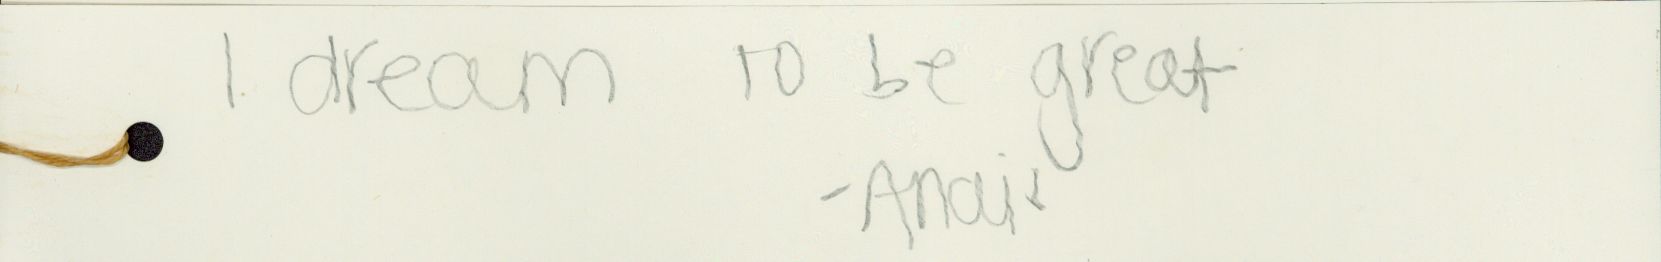 I dream to be great
-Anais